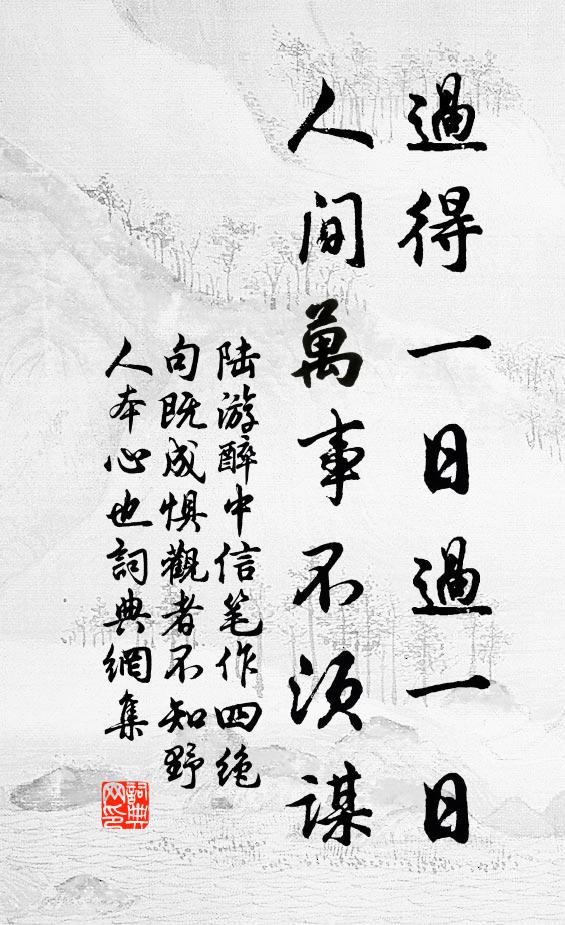 過得一日過一日
人間萬事不須謀
陆游醉中信笔作四绝
句既成惧觀者不知野
人本心也詞典網集
詞典网印